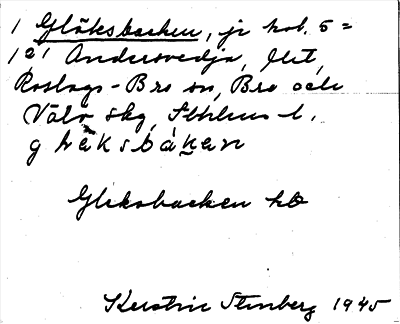 1 Gläksbacken, jr kol. 5 =
1 a 1 Andersvedja, Mit,
Roslags-Bro sn, Bro och
Vätö skg, Sthlms l.
g läksbákan
Gleksbacken
Kerstin Stenberg 1945